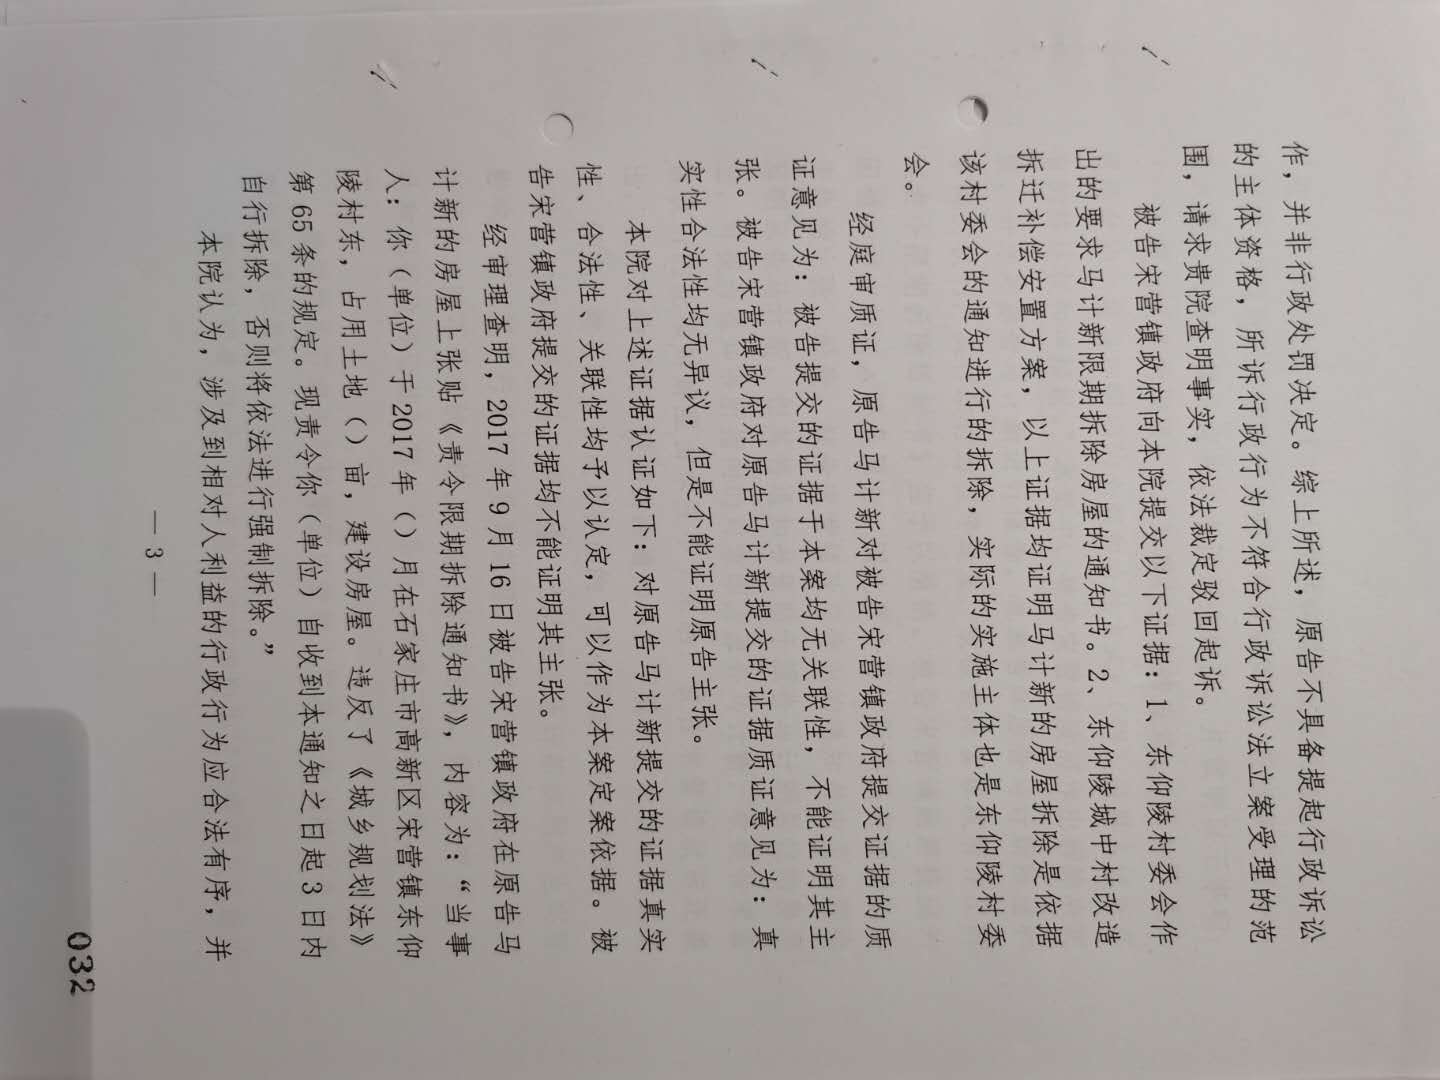 作，并非行政处罚决定。综上所述，原告不具备提起行政诉讼
的主体资格，所诉行政行为不符合行政诉讼法立案受理的范
围，请求贵院查明事实，依法裁定驳回起诉。
被告宋营镇政府向本院提交以下证据：1、东仰陵村委会作
出的要求马计新限期拆除房屋的通知书。2、东仰陵城中村改造
拆迁补偿安置方案，以上证据均证明马计新的房屋拆除是依据
该村委会的通知进行的拆除，实际的实施主体也是东仰陵村委
会。
经庭审质证，原告马计新对被告宋营镇政府提交证据的质
证意见为：被告提交的证据于本案均无关联性，不能证明其主
张。被告宋营镇政府对原告马计新提交的证据质证意见为：真
实性合法性均无异议，但是不能证明原告主张。
本院对上述证据认证如下：对原告马计新提交的证据真实
性、合法性、关联性均予以认定，可以作为本案定案依据。被
告宋营镇政府提交的证据均不能证明其主张。
经审理查明，2017年9月16日被告宋营镇政府在原告马
计新的房屋上张贴《责令限期拆除通知书》，内容为：“当事
人：你（单位）于2017年（）月在石家庄市高新区宋营镇东仰
陵村东，占用土地（）亩，建设房屋。违反了《城乡规划法》
第65条的规定。现责令你（单位）自收到本通知之日起3日内
自行拆除，否则将依法进行强制拆除。”
本院认为，涉及到相对人利益的行政行为应合法有序，并
— 3 —
032